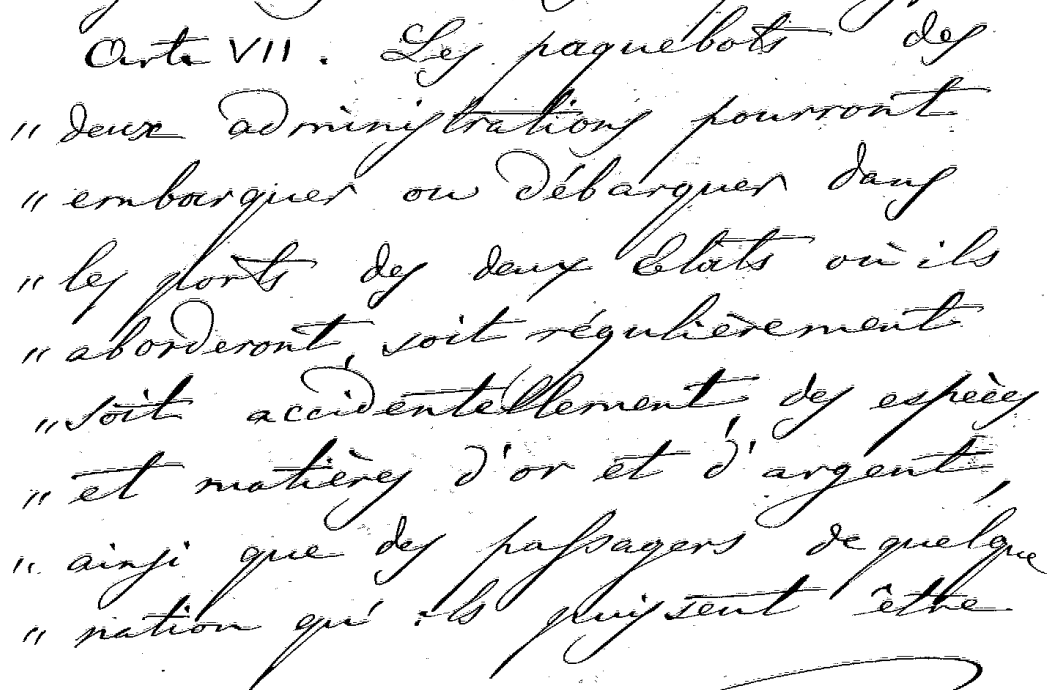 Arte VII. Les paquebots des
" deux administrations pourront
" embarquer ou débarquer dans
" les ports des deux Etats où ils
" aborderont, soit régulièrement
" soit accidentellement, des espèces
" et matières d'or et d'argent,
" ainsi que des passagers de quelque
" nation qu'ils puissent être